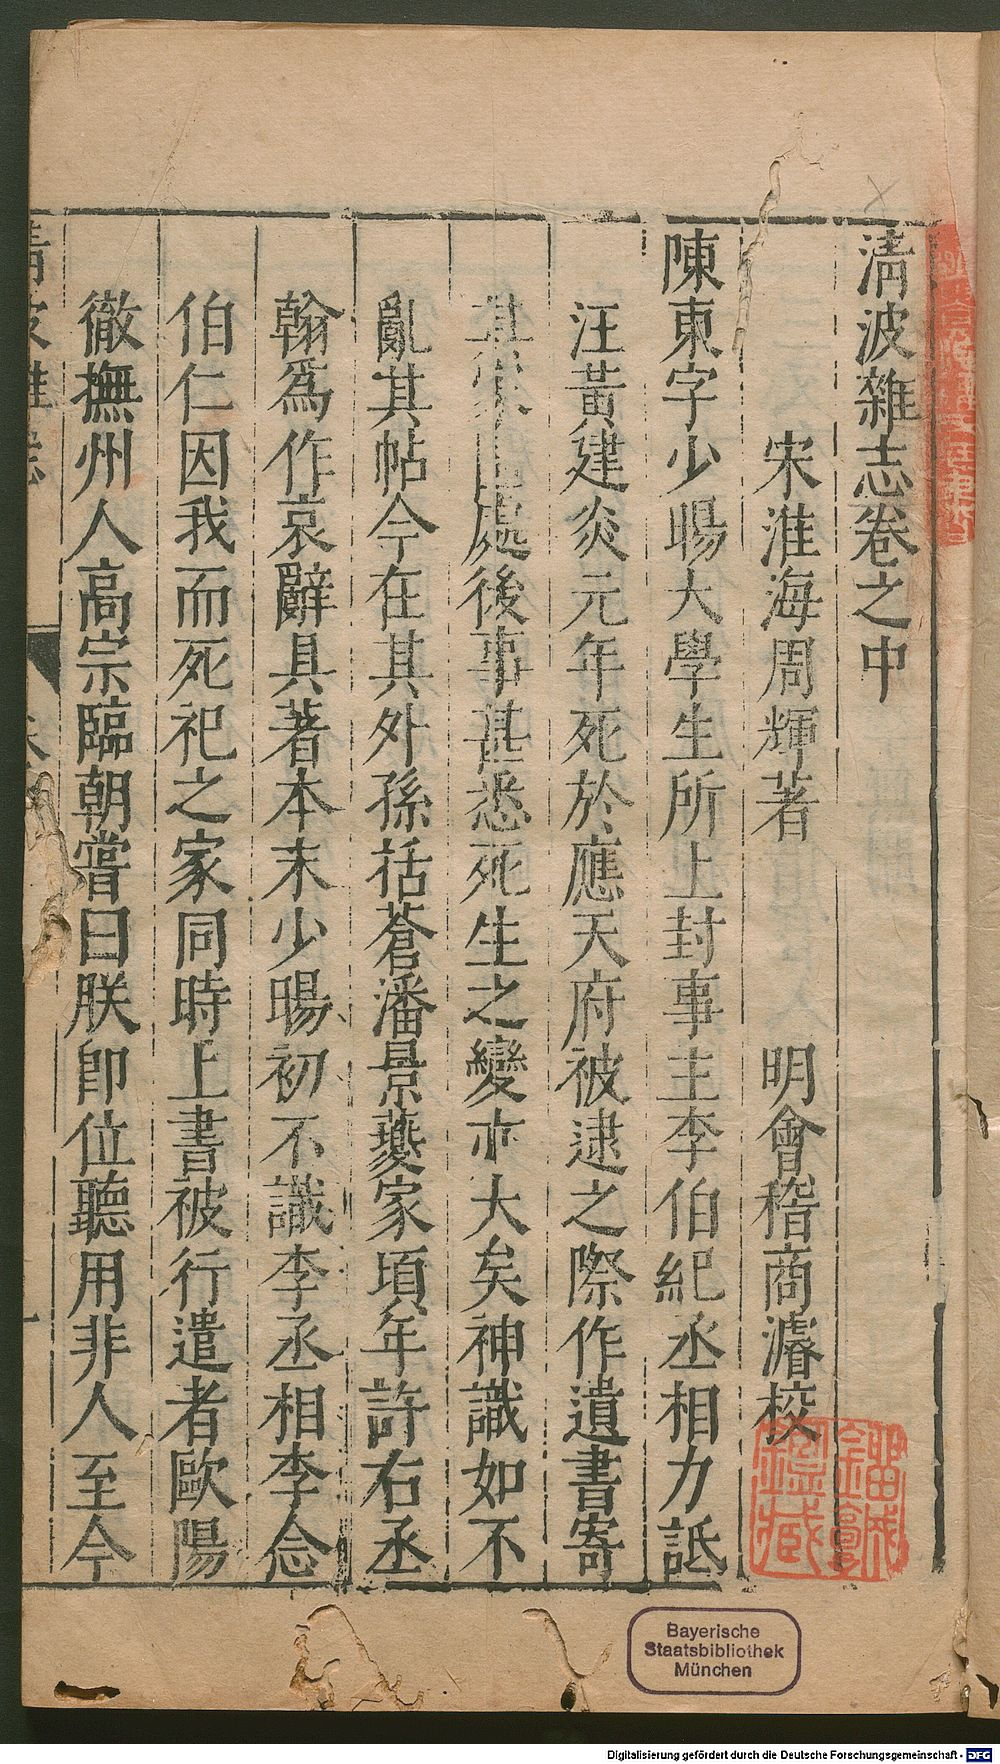 清波雜志卷之中
宋淮海周輝著 明會稽商濬校
陳東字少暘大學生所上封事主李伯紀丞相力詆
汪黃建炎元年死於應天府被逮之際作遺書寄
其家區處後事甚悉死生之變亦大矣神識如不
亂其帖今在其外孫括蒼潘景夔家頃年許右丞
翰為作哀辭具著本末少暘初不識李丞相李念
伯仁因我而死祀之家同時上書被行遣者歐陽
徹撫州人高宗臨朝嘗曰朕即位聽用非人至今
Bayerische
Staatsbibliothek
München
Digitalisierung gefördert durch die Deutsche Forschungsgemeinschaft - DFG